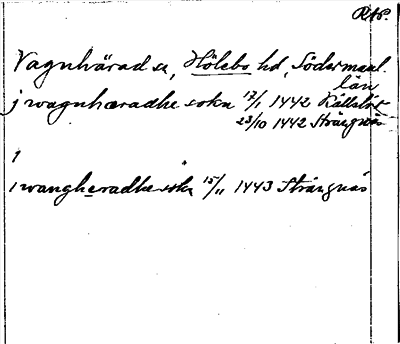 RAP.
Vagnhärad sn, Hölebo hd, Södermanl.
län
j wagnhæradhe sokn 17/1 1442 Källslöt
23/10 1442 Strängnäs
i
i wangheradhe sokn 15/11 1443 Strängnäs